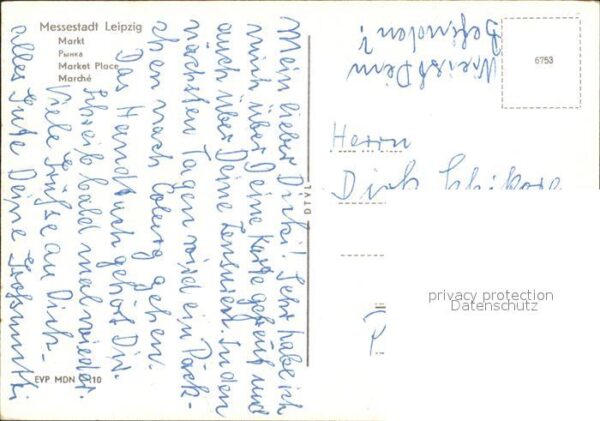 Messestadt Leipzig
Markt
Рынка
Market Place
Marché
Mein lieber Dirki! Sehr habe ich
mich über Deine Karte gefreut und
auch über Deine Zensuren. In den
nächsten Tagen wird ein Päck-
chen nach Coburg gehen.
Das Handtuch gehört Dir.
Schreib bald mal wieder.
Viele Grüße an Dich
alles Gute Deine Grossmutti
EVP MDN 0,10
DTVL
Wie ist Dein
Befinden?
6753
Herrn
Dirk
privacy protection
Datenschutz